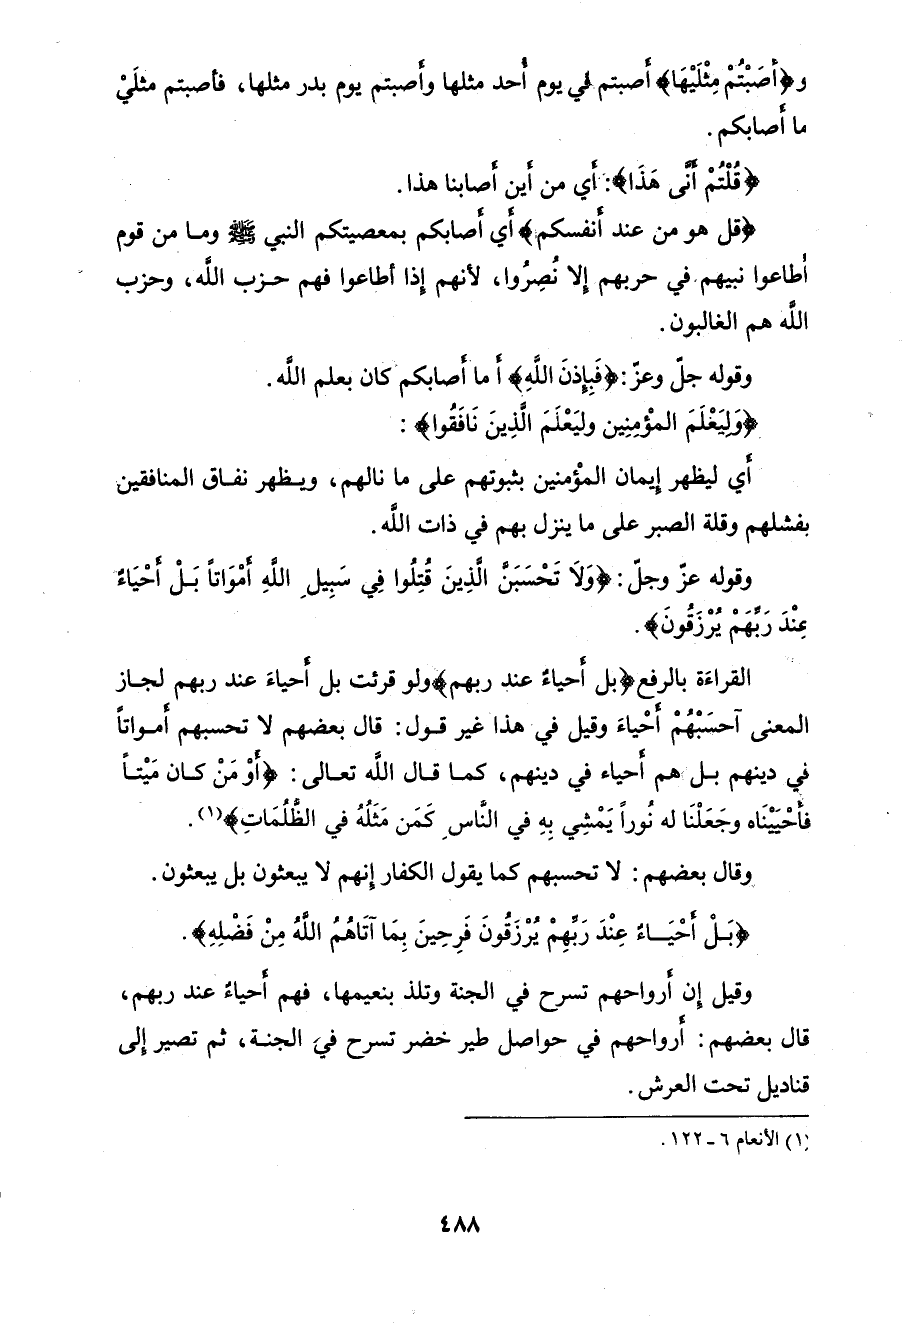 و﴿أَصَبْتُمْ مِثْلَيْهَا﴾ أَصبتم في يوم أُحد مثلها وأَصبتم يوم بدر مثلها، فأصبتم مثلَيْ
ما أَصابكم.
﴿قُلْتُمْ أَنَّى هَذَا﴾: أَي من أَين أَصابنا هذا.
﴿قل هو من عند أَنفسكم﴾ أَي أَصابكم بمعصيتكم النبي ﷺ وما من قوم
أطاعوا نبيهم في حربهم إلا نُصِرُوا، لأنهم إذا أطاعوا فهم حزب اللَّه، وحزب
اللَّه هم الغالبون.
وقوله جلّ وعزّ: ﴿فَبِإِذْنَ اللَّهِ﴾ أَ ما أَصابكم كان بعلم اللَّه.
﴿وَلِيَعْلَمَ المؤْمِنِين وليَعْلَمَ الَّذِينَ نَافَقُوا﴾ :
أَي ليظهر إيمان المؤمنين بثبوتهم على ما نالهم، ويظهر نفاق المنافقين
بفشلهم وقلة الصبر على ما ينزل بهم في ذات اللَّه.
وقوله عزّ وجلّ: ﴿وَلَا تَحْسَبَنَّ الَّذِينَ قُتِلُوا فِي سَبِيلِ اللَّهِ أَمْوَاتاً بَلْ أَحْيَاءٌ
عِنْدَ رَبِّهَمْ يُرْزَقُونَ﴾.
القراءَة بالرفع ﴿بل أَحياءٌ عند ربهم﴾ ولو قرئت بل أَحياءَ عند ربهم لجاز
المعنى آحسَبْهُمْ أَحْياءَ وقيل في هذا غير قول: قال بعضهم لا تحسبهم أَمواتاً
في دينهم بل هم أَحياء في دينهم، كما قال اللَّه تعالى: ﴿أَوْ مَنْ كان مَيْتاً
فأَحْيَيْنَاه وجَعَلْنَا له نُوراً يَمْشِي بِهِ في النَّاسِ كَمَن مَثَلُهُ في الظُّلُمَاتِ﴾(١).
وقال بعضهم: لا تحسبهم كما يقول الكفار إنهم لا يبعثون بل يبعثون.
﴿بَلْ أَحْيَاءٌ عِنْدَ رَبِّهِمْ يُرْزَقُونَ فَرِحِينَ بِمَا آتَاهُمُ اللَّهُ مِنْ فَضْلِهِ﴾.
وقيل إن أَرواحهم تسرح في الجنة وتلذ بنعيمها، فهم أَحياءٌ عند ربهم،
قال بعضهم: أَرواحهم في حواصل طير خضر تسرح في الجنة، ثم تصير إلى
قناديل تحت العرش.
(١) الأنعام ٦-١٢٢.
٤٨٨